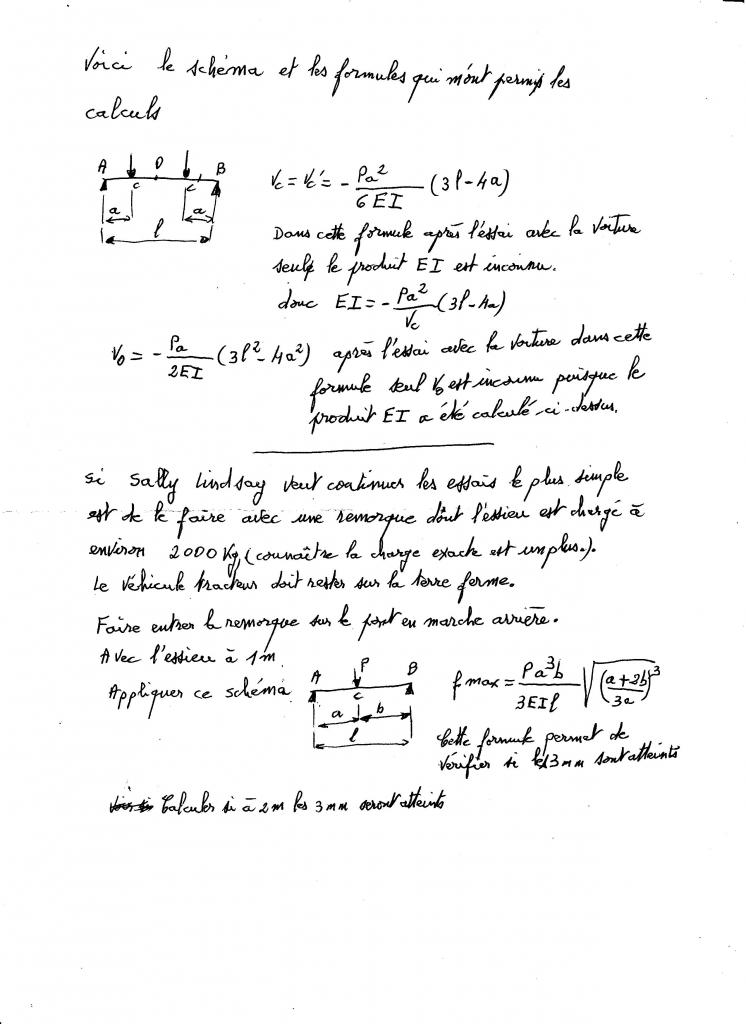 Voici le schéma et les formules qui m'ont permis les
calculs
A D B
c c'
a a
l
Vc = Vc' = - Pa²/6EI (3l-4a)
Dans cette formule après l'éssai avec la voiture
seule le produit EI est inconnu.
donc EI = - Pa²/Vc (3l-4a)
V0 = - Pa/2EI (3l²-4a²) après l'éssai avec la voiture dans cette
formule seul V0 est inconnu puisque le
produit EI a été calculé ci-dessus.
Si Sally Lindsay veut continuer les essais le plus simple
est de le faire avec une remorque dont l'éssieu est chargé à
environ 2000 Kg, (connaître la charge exacte est un plus.).
Le véhicule tracteur doit rester sur la terre ferme.
Faire entrer la remorque sur le pont en marche arrière.
Avec l'essieu à 1m
Appliquer ce schéma
A P B
c
a b
l
f max = Pa³b/3EIl √((a+2b)/3a)³
Cette formule permet de
vérifier si les 3mm sont atteints
Calculer si à 2m les 3mm seront atteints